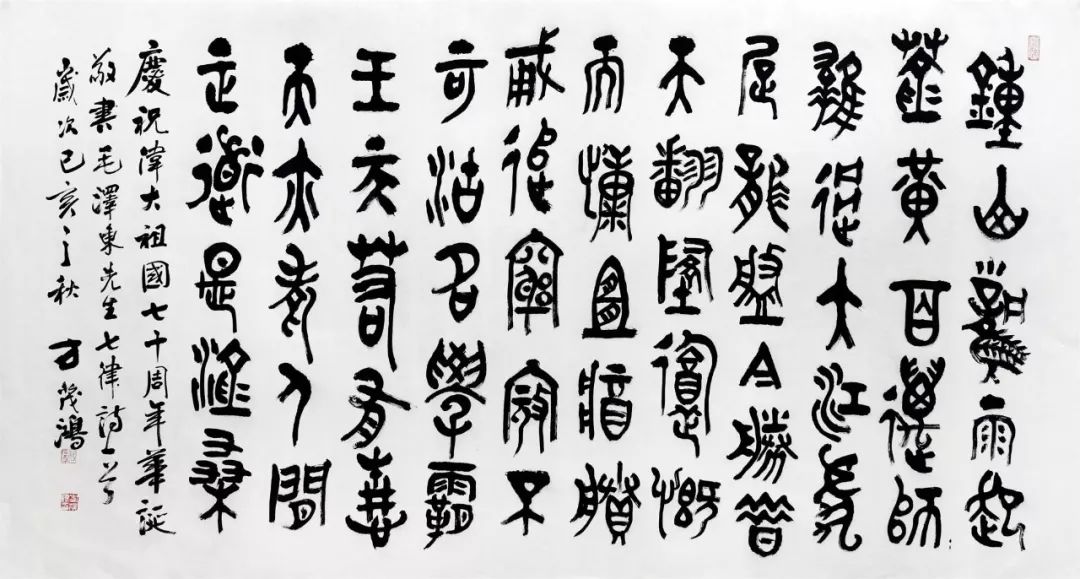 鐘山風雨起
蒼黃百萬師
雄過大江虎
踞龍盤今勝昔
天翻地覆慨
而慷宜將賸
勇追窮寇不
可沽名學霸
王天若有情
天亦老人間
正道是滄桑
慶祝偉大祖國七十周年華誕
敬書毛澤東先生七律詩一首
歲次己亥之秋 方茂鴻